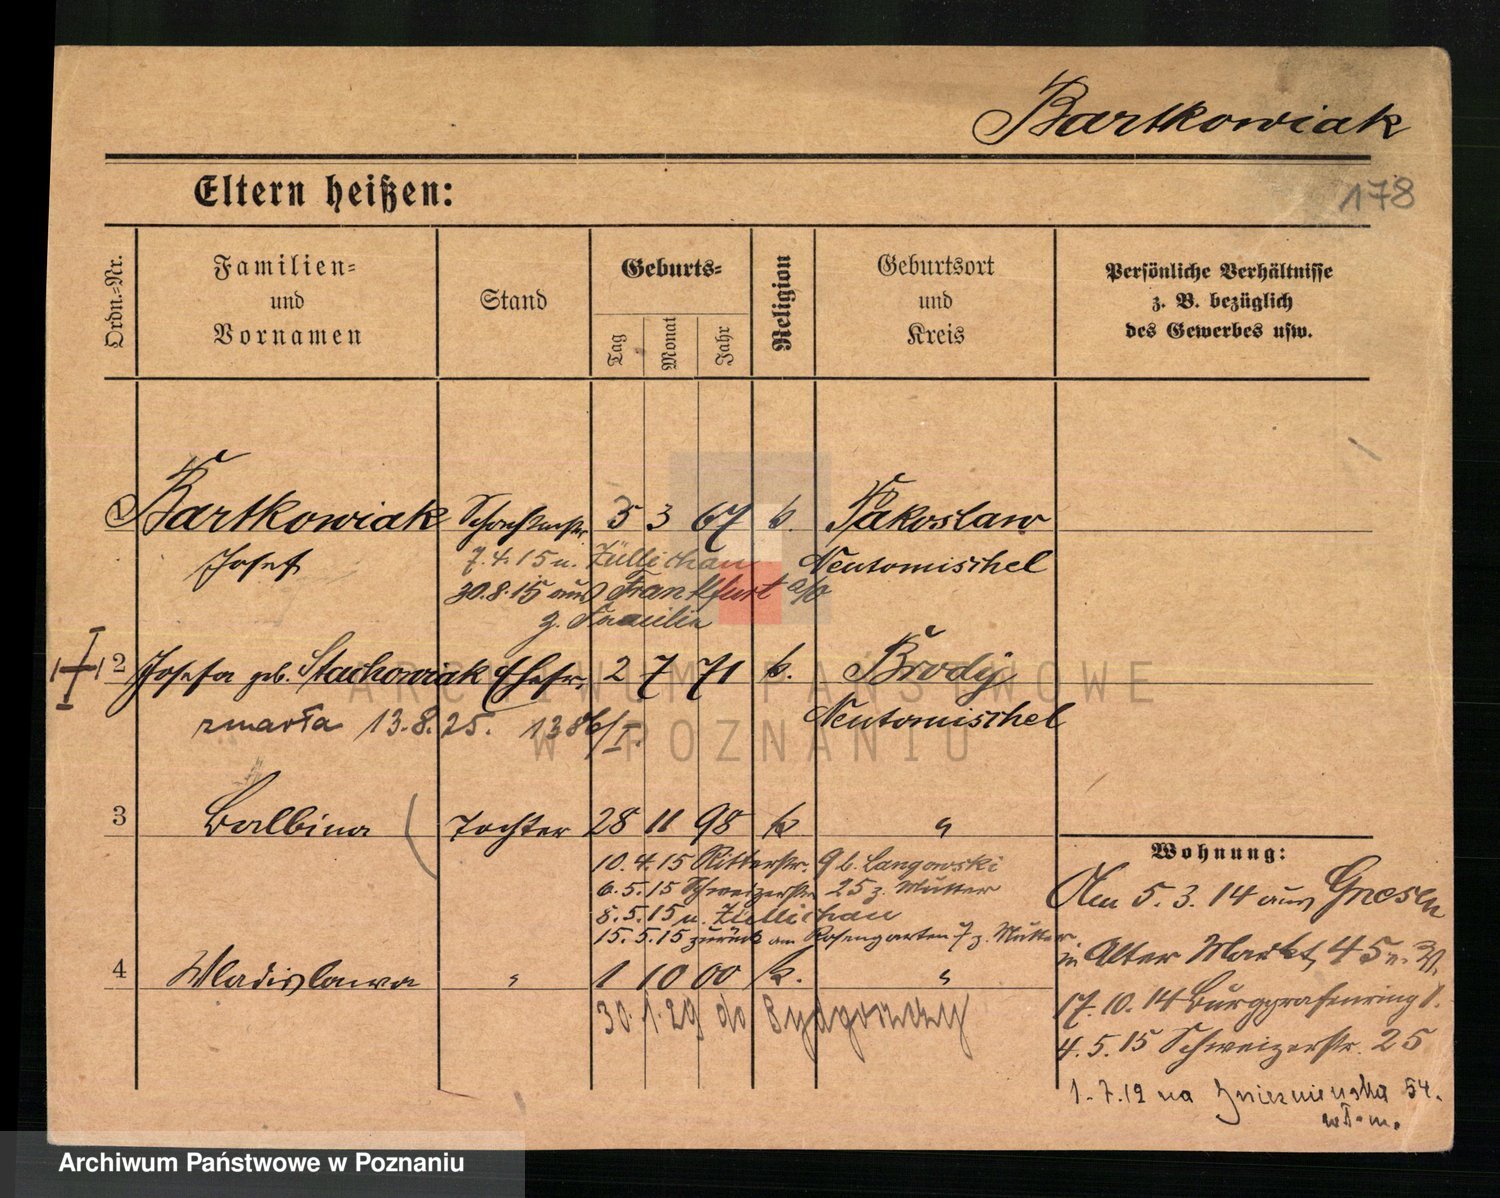 Bartkowiak
178
Eltern heißen:
Ordn.-Nr.
Familien- und Vornamen
Stand
Geburts-
Tag
Monat
Jahr
Religion
Geburtsort und Kreis
Persönliche Verhältnisse z. B. bezüglich des Gewerbes usw.
1 Bartkowiak 5 3 67 k. Pakoslaw
Josef
Neutomischel
7.4.15 n. Züllichau
30.8.15 aus Frankfurt a/O
z. Familie
2 Josefa geb. Stachowiak Ehefr. 2 7 71 k. Brody
zmarła 13.8.25. 1386/I.
Neutomischel
3 Balbina Tochter 28 11 98 k "
10.4.15 Ritterstr. 9 b. Langowski
6.5.15 Schweizerstr 25 z. Mutter
8.5.15 n. Züllichau
15.5.15 zurück am Rosengarten 7 z. Mutter
4 Wladislawa " 1 10 00 k. "
30.1.29 do Bydgoszczy
Wohnung:
Am 5.3.14 aus Gnesen
in Alter Markt 45
17.10.14 Burggrafenring 1.
4.5.15 Schweizerstr. 25
1.7.19 na Gnieznienska 54.
wł. m.
ARCHIWUM PAŃSTWOWE
W POZNANIU
Archiwum Państwowe w Poznaniu